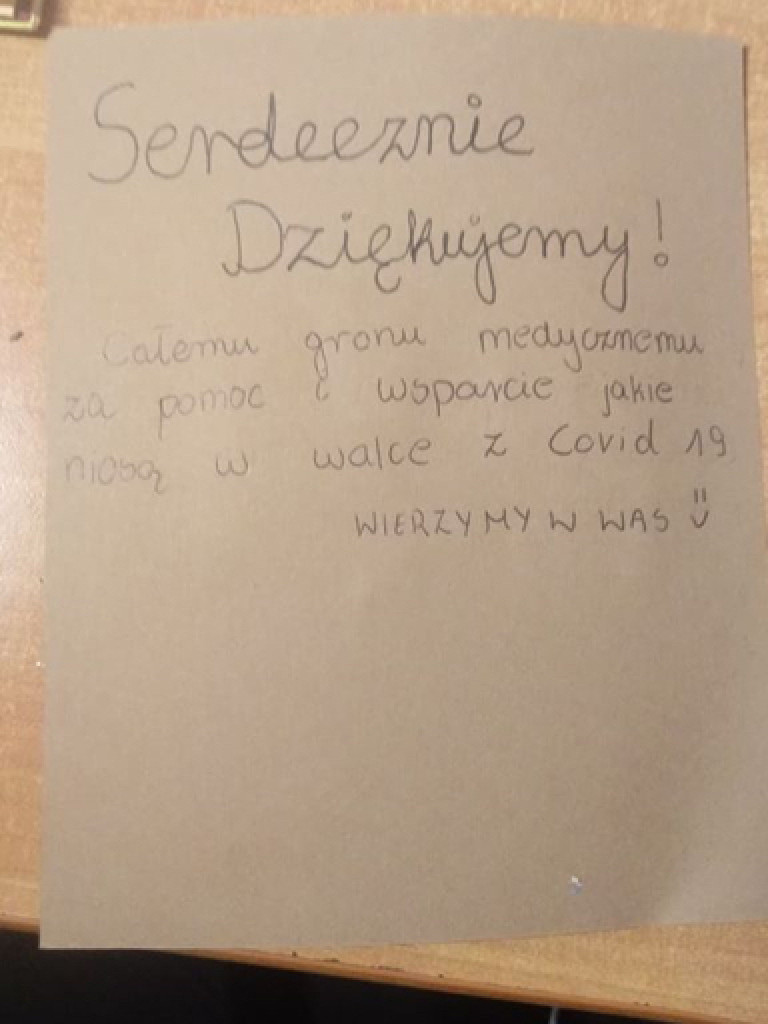 Serdecznie
Dziękujemy!
Całemu gronu medycznemu
za pomoc i wsparcie jakie
niosą w walce z Covid 19
WIERZYMY W WAS